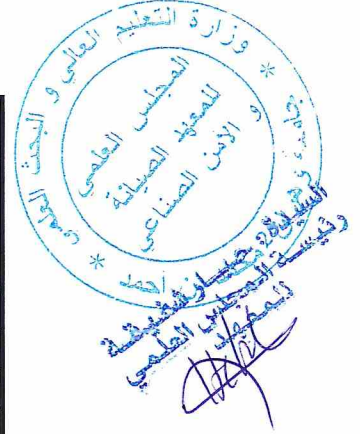 وزارة التعليم العالي و البحث العلمي
* جامعة وهران 2 محمد بن احمد *
المجلس العلمي
للمعهد الصيانة
و الأمن الصناعي
رئيسة المجلس العلمي
للمعهد